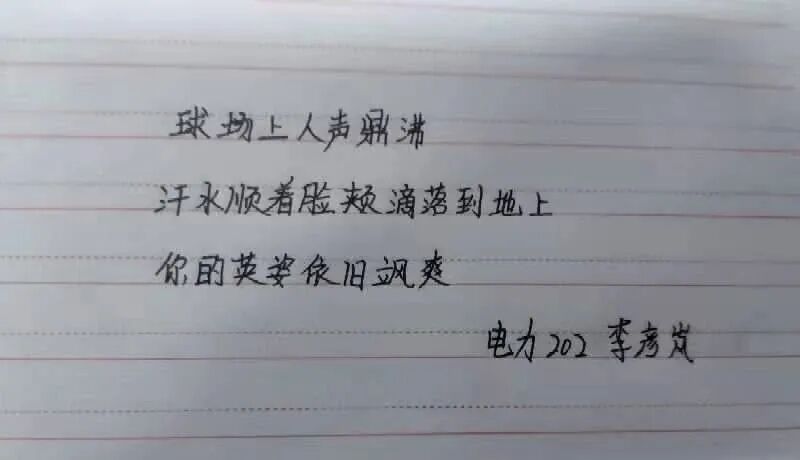 球场上人声鼎沸
汗水顺着脸颊滴落到地上
你的英姿依旧飒爽
电力202 李彦岚